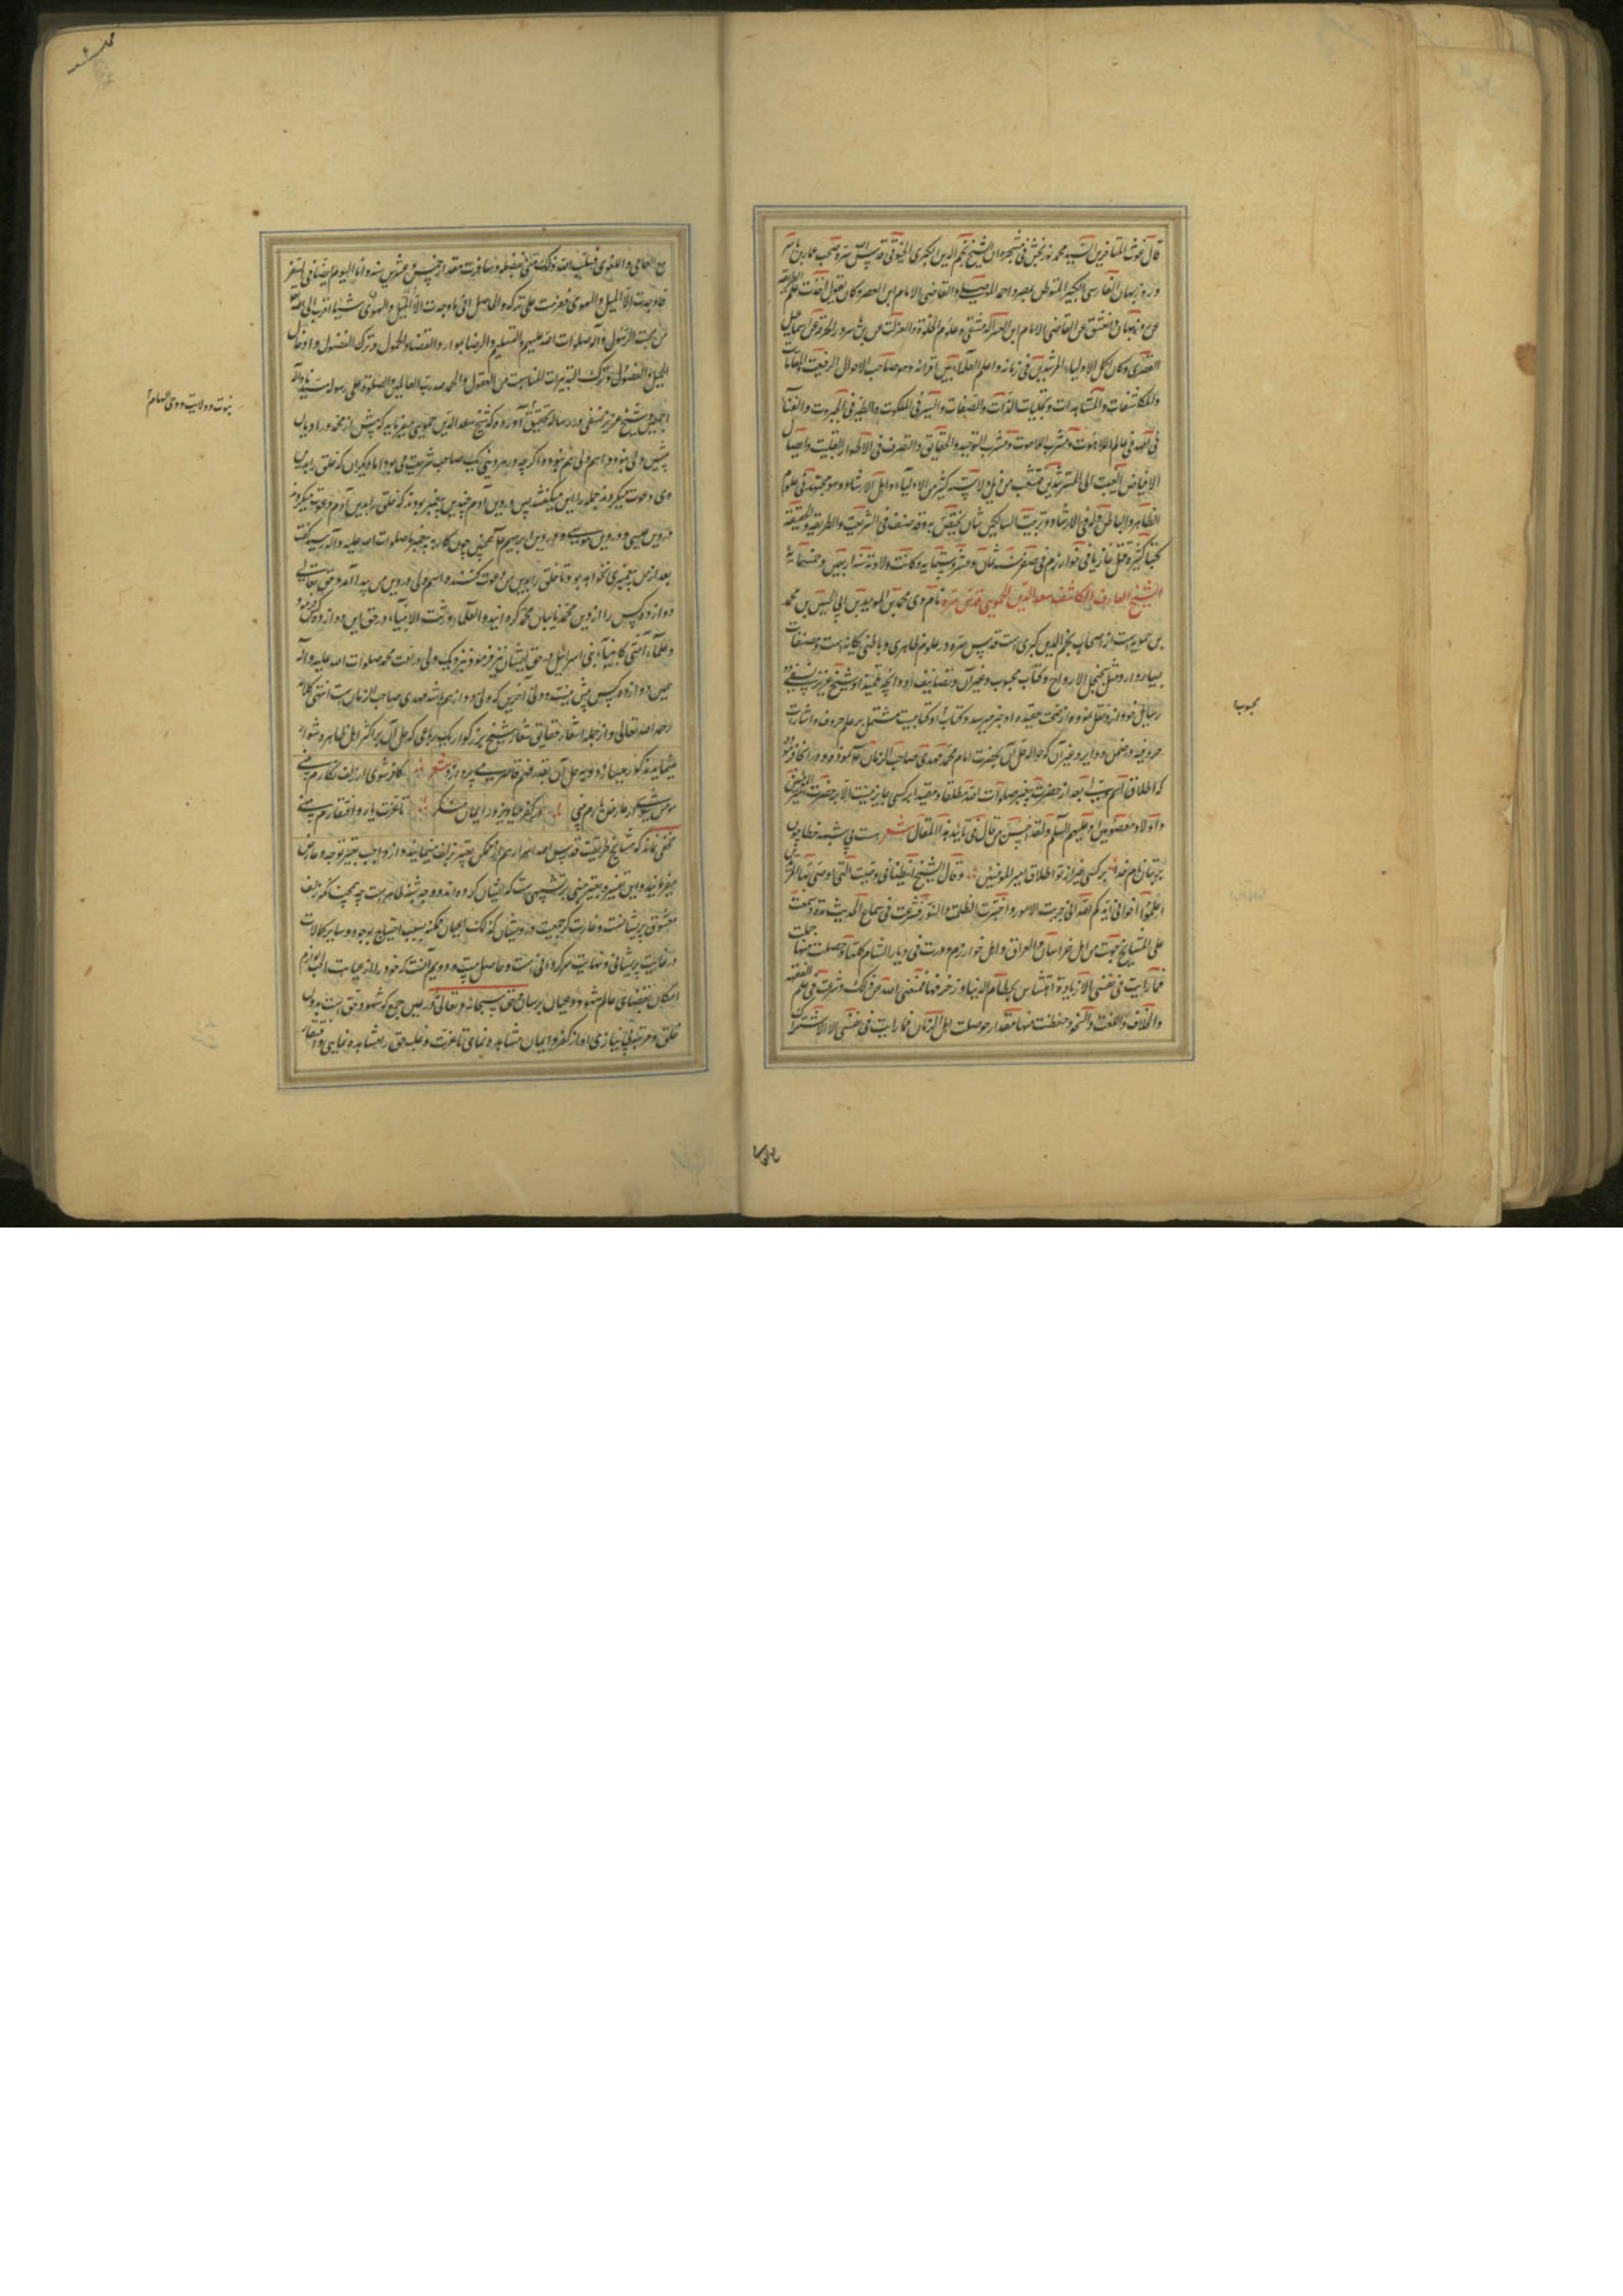 قال غوث المتأخرین السید محمد نوربخش فی مشجره ان الشیخ نجم الدین الکبری الخیوقی قدس الله سره صحب عمار بن یاسر
و روزبهان الفارسی الکبیر المتوطن بمصر و احمد الموصلی و القاضی الامام ابن العصر و کان یقول اخذت علم الطریقه
عن روزبهان و العشق عن القاضی الامام ابن العصر الدمشقی و علوم الخلوة و العزلت عن عمار و الخرقة عن اسماعیل
القصری و کان اکمل الاولیاء المرشدین فی زمانه و اعلم العلماء بین اقرانه و هو صاحب الاحوال الرفیعت و المقامات
و المکاشفات و المشاهدات و تجلیات الذات و الصفات و السیر فی الملکوت و الطیر فی الجبروت و الفناء
فی الله فی عالم اللاهوت و مشرب التوحید و الحقایق و التصرف فی الاطوار القلبیت و ایصال
الافیاض الغیبت الی المسترشدین تشعب من ذیل ولایته کثیر من الاولیاء و اهل الارشاد و هو مجتهد فی علوم
الظاهر و الباطن و له فی الارشاد و تربیت السالکین شان یختص به و قد صنف فی الشریعت و الطریقه و الحقیقه
کتبا کثیرة قتل غازیا فی خوارزم فی صفر سنه ثمان و عشر و ستمایه و کانت ولادته سنه اربعین و خمسمایه
الشیخ العارف المکاشف سعد الدین الحموی قدس سره نام وی محمد بن الموید بن ابی الحسن بن محمد
بن حمویه است از اصحاب نجم الدین کبری است قدس سره در علوم ظاهری و باطنی یگانه است و مصنفات
بسیار دارد مثل سجنجل الارواح و کتاب محبوب و غیر آن و تصانیف او و آنچه تلمیذ او شیخ عزیز نسفی در
رسایل خود از او نقل نموده از صحت عقیده او خبر میدهد و کتاب او کتابیست مشتمل بر علم حروف و اشارات
حروفیه و در ضمن دوایر و غیر آن که حواله حل آن بحضرت امام محمد مهدی صاحب الزمان نموده
که اطلاق اسم ولی بعد از حضرت پیغمبر صلوات الله مطلقا و مقیدا بر کسی جایز نیست الا بر حضرت امیرالمؤمنین
و اولاد معصومین او علیهم السلم و لقد احسن من قال فی تایید هذا المقال شعر هست بی شبهه خطا چون
بر بتان نام خدا بر کسی غیر از تو اطلاق امیر المومنین و قال الشیخ ایضا فی وصیت التی اوصی بها
اعلموا اخوانی ایدکم الله انی جربت الامور و اختبرت الظلمت و النور فشرعت فی سماع الحدیث مدة و سمعت
علی المشایخ من اهل خراسان و العراق و اهل خوارزم و درت فی دیار الشام کلها و حصلت منها جملت
فما رایت فی نفسی الا زیادة بحطام الدنیا و زخرفها فمنعنی الله من ذلک و شرعت فی علم الفقه
و الخلاف و اللغت و النحو و حفظت منها مقدار حوصلت اهل الزمان فما رایت فی نفسی الا الاشتراک
محبوب
مع العامی و اللغوی فسلبت ذلک عنی بفضله و سافرت مقدار خمس و عشرین سنه و انا الیوم ایضا فی السفر
فما وجدت الا المیل و الهوی فعزمت علی ترکه و الحاصل انی ما وجدت شیئا اقرب الی الله
من محبت الرسول و آله صلوات الله علیهم و التسلیم و الرضا بموارد القضا و الخمول و ترک الفضول
و الحمد لله رب العالمین و الصلوة علی رسوله سیدنا و آله
اجمعین و شیخ عزیز نسفی در رساله تحقیق آورده که شیخ سعد الدین حموی میفرماید که پیش از محمد در ادیان
پیشین ولی نبود و اسم ولی هم نبود و اگر چه در هر دینی یک صاحب شریعت می بود اما دیگران که خلق را بدین
وی دعوت میکردند جمله را نبی میگفتند پس در دین آدم چندین پیغمبر بودند که خلق را بدین آدم دعوت میکردند
و در دین عیسی و در دین موسی و در دین ابراهیم همچنین چون کار به پیغمبر ما صلوات الله علیه و آله رسید گفت
بعد از من پیغمبری نخواهد بود تا خلق را بدین من دعوت کننده و اسم ولی در دین من پیدا آمد و حق تعالی
دوازده کس را از دین محمد نایبان محمد گردانید و العلماء ورثت الانبیاء در حق این دوازده کس فرمود
و علماء امتی کانبیاء بنی اسرائیل در حق ایشان نیز فرمود و نزدیک ولی در امت محمد صلوات الله علیه و آله
همین دوازده کس بیش نیست و ولی آخرین که ولی دوازدهم باشد مهدی صاحب الزمان است انتهی کلامه
رحمه الله تعالی و از جمله اشعار حقایق شعار شیخ بزرگوار یک رباعی که حل آن بر اکثر اهل ظاهر دشوار
مینماید مذکور میسازد و به حل آن بقدر فهم قاصر می پردازد شعر کافر شوی ار زلف نگارم بینی
مومن شوی ار عارض یارم بینی در کفر میاویز و در ایمان منگر تا عزت یار و افتقارم بینی
مخفی نماند که مشایخ طریقت قدس الله اسرارهم از ممکن تعبیر بزلف مینمایند و از واجب تعبیر بوجه و عارض
میفرمایند و این تفسیر و تعبیر مبنی بر تشبیهی است که ایشان کرده اند و وجه شبه ظاهر است چه همچنانکه زلف
معشوق پریشانست و غارت گر جمعیت درویشان کذلک اعیان ممکنه بسبب احتیاج بوجود و سایر کمالات
در غایت پریشانی و نهایت سرگردانی است و حاصل بیت دویم آنست که خود را از جهات لوازم
امکان بمقتضای عالم شهود و عیان برسان و حق سبحانه و تعالی را در عین جمع که شهود حق است بدون
خلق و مرتبه بی نیازی او از کفر و ایمان مشاهده نمای تا عزت و غلبه حق را مشاهده نمایی و افتقار
نبوت و ولایت و وحی و الهام